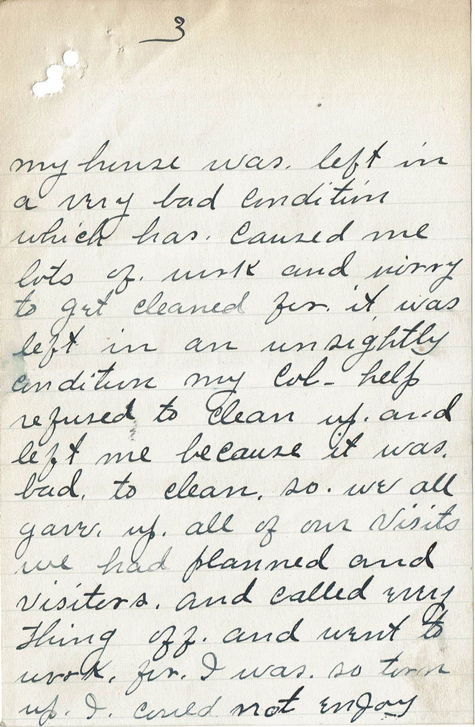 3
my house was. left in
a very bad condition
which has. caused me
lots of. work and worry
to get cleaned for. it was
left in an unsightly
condition my Col- help
refused to clean up. and
left me because it was.
bad. to clean. so. we all
gave. up. all of our visits
we had planned and
visiters. and called every
thing off. and went to
work. for. I was. so torn
up. I. could not enjoy